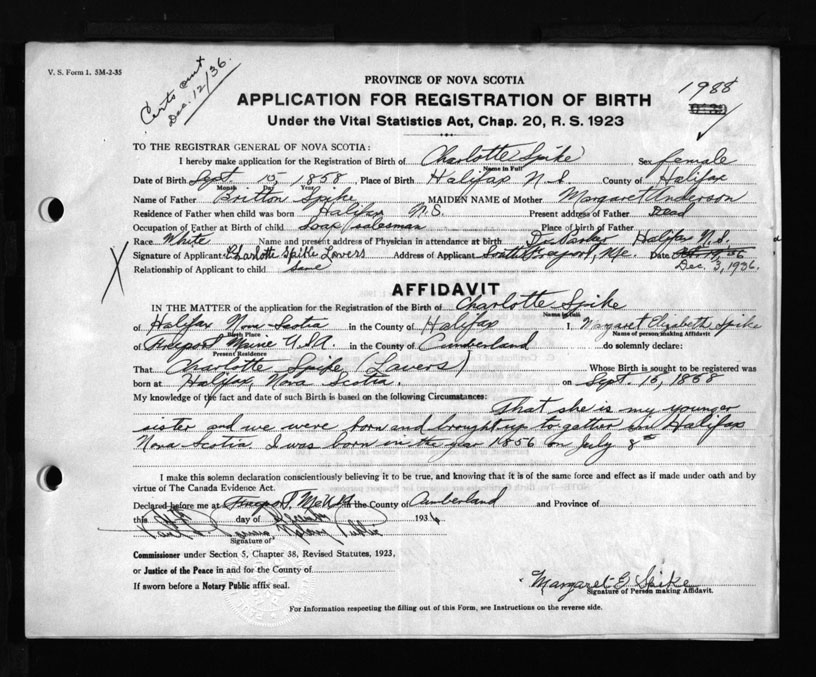 V. S. Form 1. 5M-2-35
Certs sent
Dec. 12/36.
PROVINCE OF NOVA SCOTIA
1988
APPLICATION FOR REGISTRATION OF BIRTH
Under the Vital Statistics Act, Chap. 20, R. S. 1923
TO THE REGISTRAR GENERAL OF NOVA SCOTIA:
I hereby make application for the Registration of Birth of Charlotte Spike Sex female
Name in Full
Date of Birth Sept 15, 1858, Place of Birth Halifax N.S. County of Halifax
Month Day Year
Name of Father Britton Spike MAIDEN NAME of Mother Margaret Anderson
Residence of Father when child was born Halifax N.S. Present address of Father Dead
Occupation of Father at Birth of child Soap salesman Place of birth of Father
Race White Name and present address of Physician in attendance at birth Dr. Halifax N.S.
Signature of Applicant Charlotte Spike Lavers Address of Applicant South Freeport, Me. Date
Dec. 3, 1936.
Relationship of Applicant to child Same
AFFIDAVIT
IN THE MATTER of the application for the Registration of the Birth of Charlotte Spike
Name in full
of Halifax Nova Scotia in the County of Halifax I, Margaret Elizabeth Spike
Birth Place Name of person making Affidavit
of Freeport Maine U.S.A. in the County of Cumberland do solemnly declare:
Present Residence
That Charlotte Spike (Lavers) Whose Birth is sought to be registered was
born at Halifax, Nova Scotia. on Sept. 15, 1858
My knowledge of the fact and date of such Birth is based on the following Circumstances:
That she is my younger
sister and we were born and brought up to gether in Halifax
Nova Scotia I was born in the year 1856 on July 8th
I make this solemn declaration conscientiously believing it to be true, and knowing that it is of the same force and effect as if made under oath and by
virtue of The Canada Evidence Act.
Declared before me at Freeport Me USA in the County of Cumberland and Province of
this day of 1936
Signature of Notary Public
Commissioner under Section 5, Chapter 38, Revised Statutes, 1923,
or Justice of the Peace in and for the County of
If sworn before a Notary Public affix seal.
Margaret E Spike
Signature of Person making Affidavit.
For Information respecting the filling out of this Form, see Instructions on the reverse side.